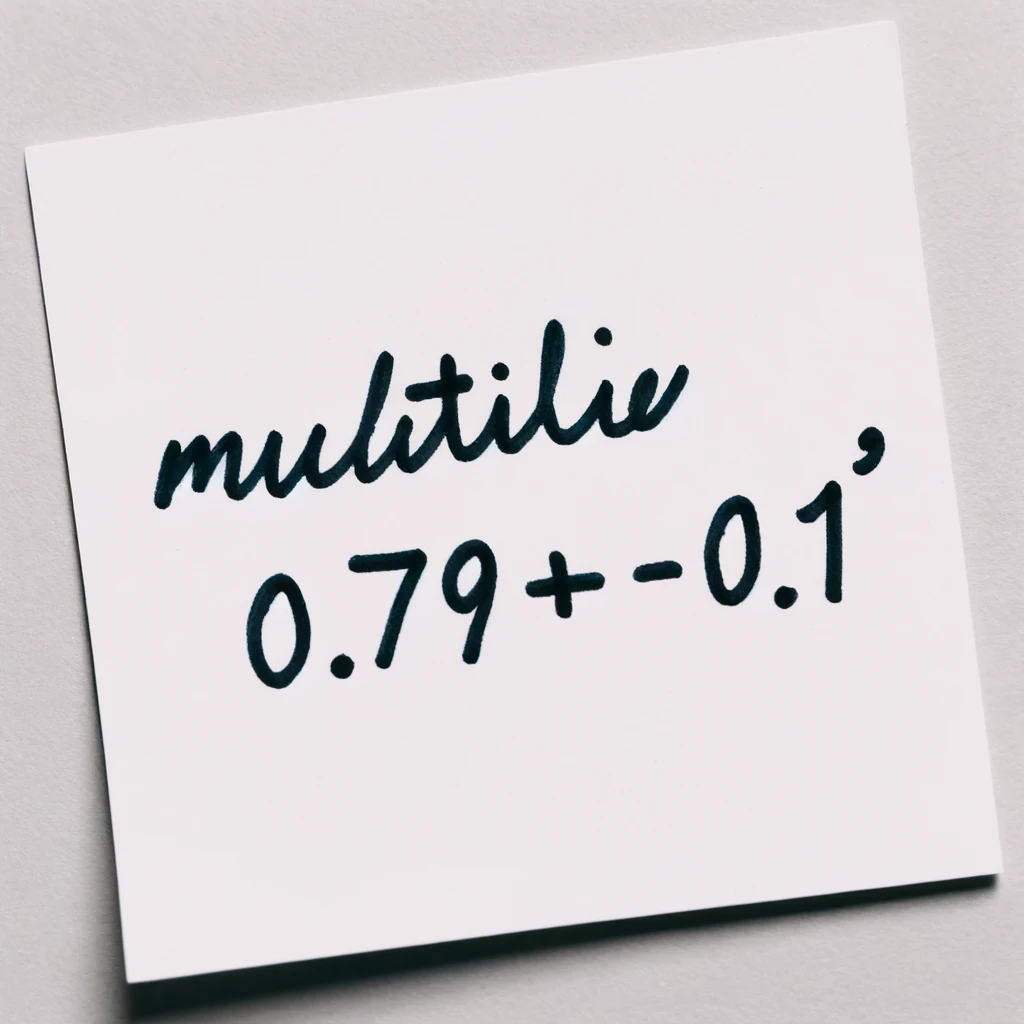 multilie
0.79+-0.1’